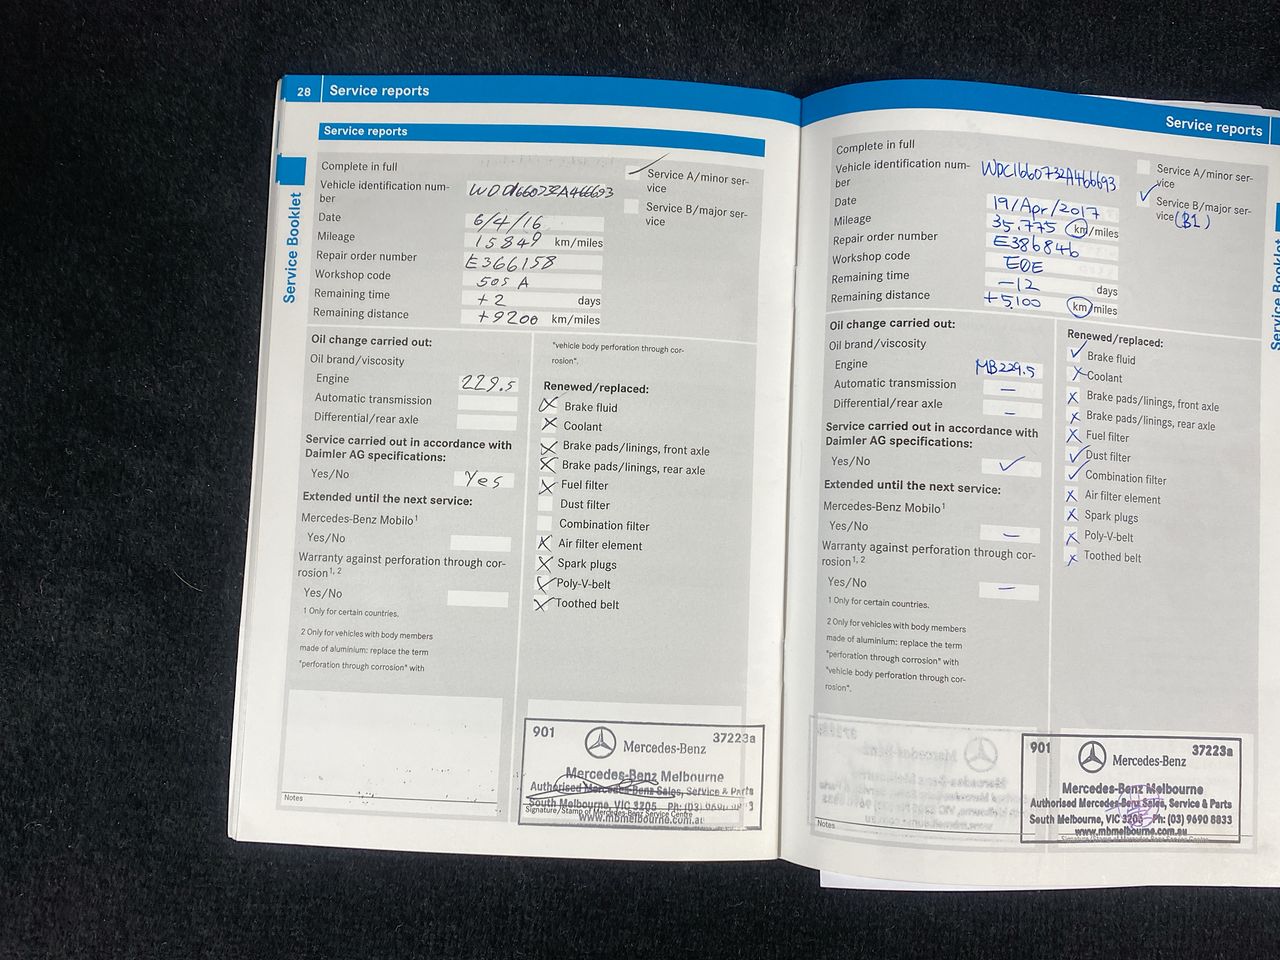 28 Service reports
Service reports
Service Booklet
Complete in full
Vehicle identification num-
ber WDD1660732A466693
Date 6/4/16
Mileage 15840 km/miles
Repair order number E366158
Workshop code 505 A
Remaining time +2 days
Remaining distance +9200 km/miles
Service A/minor ser-
vice
Service B/major ser-
vice
Oil change carried out:
Oil brand/viscosity
Engine 229.5
Automatic transmission
Differential/rear axle
Service carried out in accordance with
Daimler AG specifications:
Yes/No Yes
Extended until the next service:
Mercedes-Benz Mobilo1
Yes/No
Warranty against perforation through cor-
rosion1, 2
Yes/No
1 Only for certain countries.
2 Only for vehicles with body members
made of aluminium: replace the term
"perforation through corrosion" with
"vehicle body perforation through cor-
rosion".
Renewed/replaced:
Brake fluid
Coolant
Brake pads/linings, front axle
Brake pads/linings, rear axle
Fuel filter
Dust filter
Combination filter
Air filter element
Spark plugs
Poly-V-belt
Toothed belt
Notes
901 37223a
Mercedes-Benz
Mercedes-Benz Melbourne
Authorised Mercedes-Benz Sales, Service & Parts
South Melbourne, VIC 3205 Ph: (03) 9690
Signature/Stamp of Mercedes-Benz Service Centre
www.mbmelbourne.com.au
Service reports
Complete in full
Vehicle identification num-
ber WDC1660732A466693
Date 19/Apr/2017
Mileage 35.775 km/miles
Repair order number E386846
Workshop code E0E
Remaining time -12 days
Remaining distance +5,100 km/miles
Service A/minor ser-
vice
Service B/major ser-
vice (B1)
Oil change carried out:
Oil brand/viscosity
Engine MB229.5
Automatic transmission –
Differential/rear axle –
Service carried out in accordance with
Daimler AG specifications:
Yes/No ✓
Extended until the next service:
Mercedes-Benz Mobilo1
Yes/No –
Warranty against perforation through cor-
rosion1, 2
Yes/No –
1 Only for certain countries.
2 Only for vehicles with body members
made of aluminium: replace the term
"perforation through corrosion" with
"vehicle body perforation through cor-
rosion".
Renewed/replaced:
Brake fluid
Coolant
Brake pads/linings, front axle
Brake pads/linings, rear axle
Fuel filter
Dust filter
Combination filter
Air filter element
Spark plugs
Poly-V-belt
Toothed belt
Notes
901 37223a
Mercedes-Benz
Mercedes-Benz Melbourne
Authorised Mercedes-Benz Sales, Service & Parts
South Melbourne, VIC 3205 Ph: (03) 9690 8833
www.mbmelbourne.com.au
Signature/Stamp of Mercedes-Benz Service Centre
Service Booklet